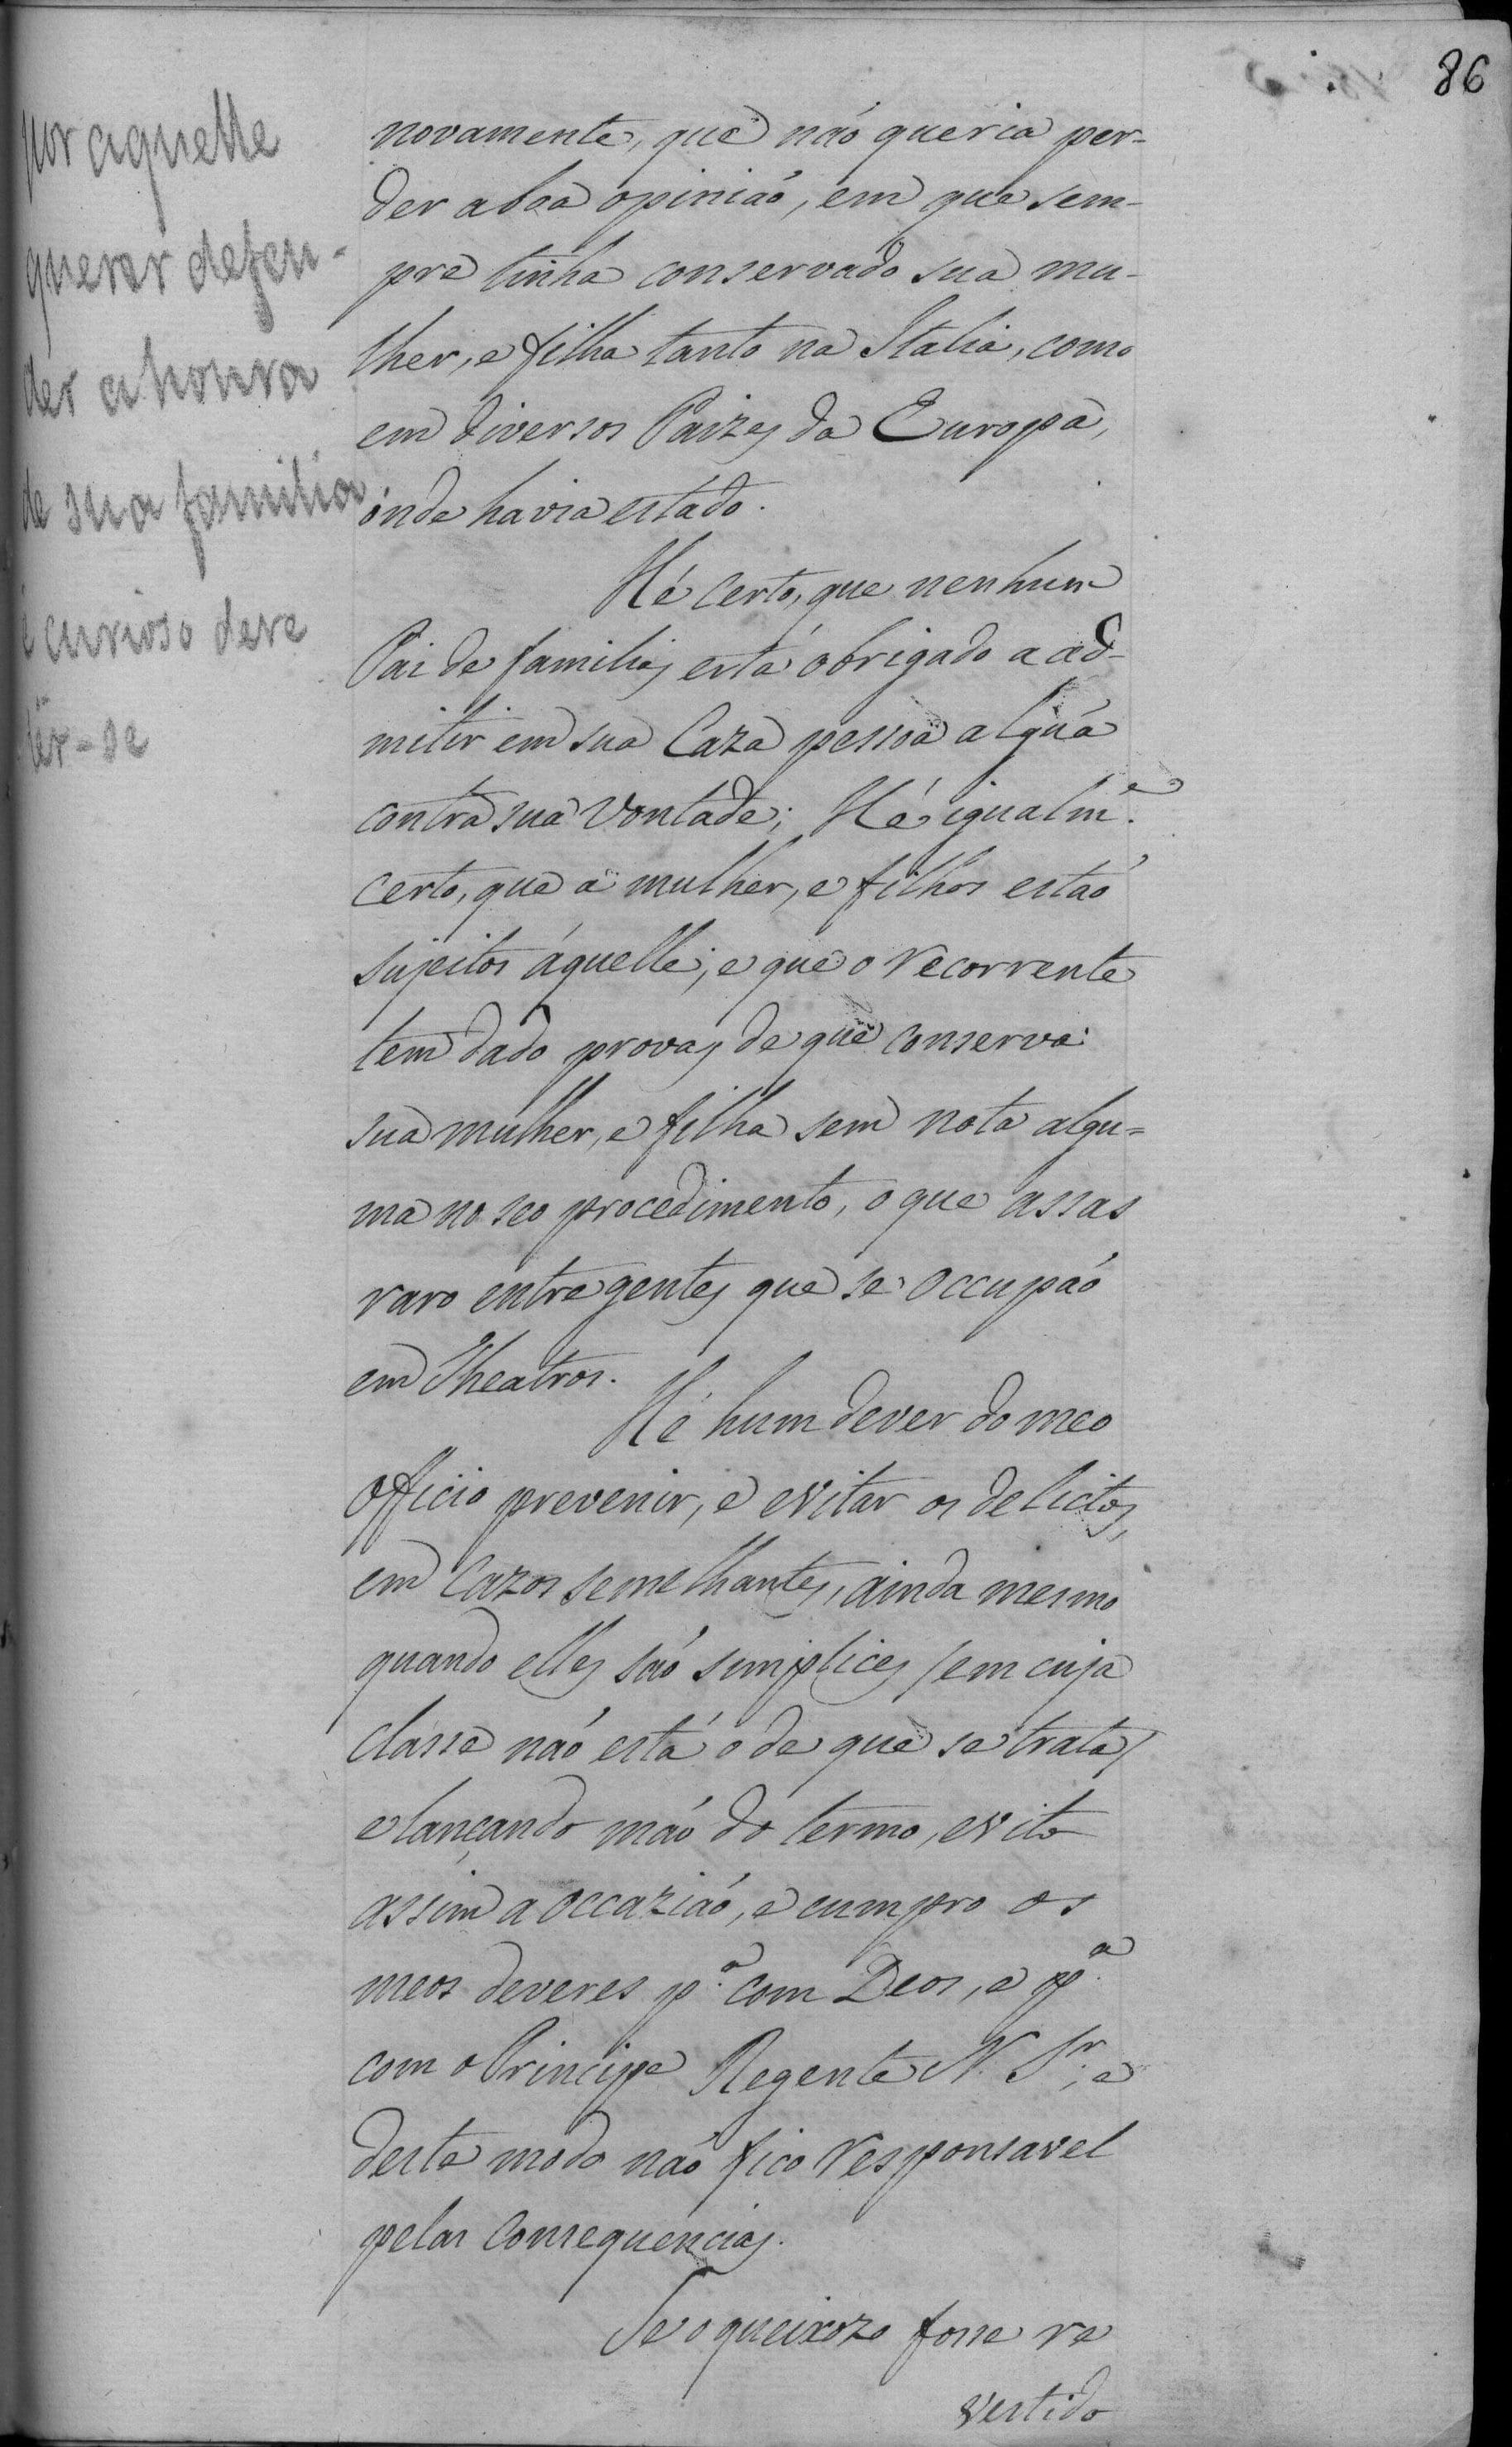 86
por aquelle
querer defen-
der a honra
de sua familia
é curioso deve
ler-se
novamente, que não queria per-
der a boa opinião, em que sem-
pre tinha conservado sua mu-
lher, e filha tanto na Italia, como
em diversos Paizes da Europa,
onde havia estado.
Hé certo, que nenhum
Pai de familias está obrigado a ad-
mitir em sua Caza pessoa algúa
contra sua vontade; Hé igualm.e
certo, que a mulher, e filhos estão
sujeitos áquelle; e que o recorrente
tem dado provas de que conserva
sua mulher, e filha sem nota algu=
ma no seo procedimento, o que assas
raro entre gentes que se occupão
em Theatros.
Hé hum dever do meo
Officio prevenir, e evitar os delictos,
em Cazos semelhantes, ainda mesmo
quando elles são simplices /em cuja
classe não está o de que se trata/
e lançando mão do termo, evito
assim a occazião, e cumpro os
meos deveres p.a com Deos, e p.a
com o Principe Regente N. S.r, e
deste modo não fico responsavel
pelas Consequencias.
Se o queixozo fosse re
vestido